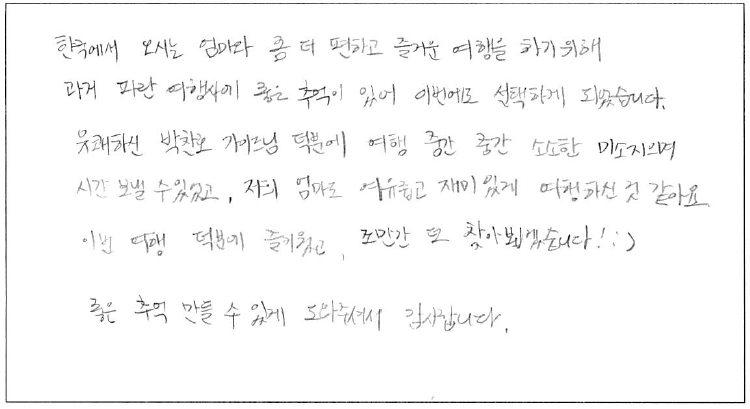 한국에서 오시는 엄마와 좀 더 편하고 즐거운 여행을 하기위해
과거 파란 여행사에 좋은 추억이 있어 이번에도 선택하게 되었습니다.
유쾌하신 박찬호 가이드님 덕분에 여행 중간 중간 소소한 미소지으며
시간 보낼 수있었고, 저희 엄마도 여유롭고 재미있게 여행하신 것 같아요.
이번 여행 덕분에 즐거웠고, 조만간 또 찾아뵙겠습니다! :)
좋은 추억 만들 수 있게 도와주셔서 감사합니다.